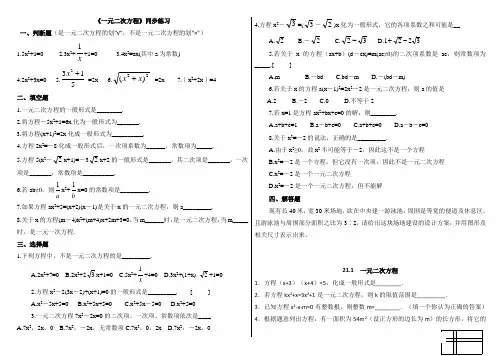 《一元二次方程》同步练习
一、判断题(是一元二次方程的划"√",不是一元二次方程的划"×")
1.5x²+1=0 2.3x²+1/x+1=0 3.4x²=ax(其中a为常数)
4.2x²+3x=0 5.(3x²+1)/5 =2x 6.√((x²+x)²) =2x 7.|x²+2x|=4
二、填空题
1.一元二次方程的一般形式是________.
2.将方程-5x²+1=6x化为一般形式为________.
3.将方程(x+1)²=2x化成一般形式为__________.
4.方程2x²=-8化成一般形式后,一次项系数为______,常数项为_____.
5.方程5(x²-√2x+1)=-3√2x+2的一般形式是________,其二次项是_______,一次
项是_______,常数项是_________.
6.若ab≠0,则1/a x²+1/b x=0的常数项是_________.
7.如果方程ax²+5=(x+2)(x-1)是关于x的一元二次方程,则a_________.
8.关于x的方程(m-4)x²+(m+4)x+2m+3=0,当m______时,是一元二次方程,当m_____
时,是一元一次方程.
三、选择题
1.下列方程中,不是一元二次方程的是_________.
A.2x²+7=0 B.2x²+2√3x+1=0 C.5x²+1/x+4=0 D.3x²+(1+x)√2+1=0
2.方程x²-2(3x-2)+(x+1)=0的一般形式是_________. [ ]
A.x²-5x+5=0 B.x²+5x+5=0 C.x²+5x-5=0 D.x²+5=0
3.一元二次方程7x²-2x=0的二次项、一次项、常数项依次是____
A.7x²,2x,0 B.7x²,-2x,无常数项 C.7x²,0,2x D.7x²,-2x,0
4.方程x²-√3=(√3-√2)x化为一般形式,它的各项系数之和可能是__
A.√2 B.-√2 C.√2-√3 D.1+√2-2√3
2.若关于x的方程(ax+b)(d-cx)=m(ac≠0)的二次项系数是ac,则常数项为
_____.[ ]
A.m B.-bd C.bd-m D.-(bd-m)
6.若关于x的方程a(x-1)²=2x²-2是一元二次方程,则a的值是
A.2 B.-2 C.0 D.不等于2
7.若x=1是方程ax²+bx+c=0的解,则________.
A.a+b+c=1 B.a-b+c=0 C.a+b+c=0 D.a-b-c=0
8.关于x²=-2的说法,正确的是_________.
A.由于x²≥0,故x²不可能等于-2,因此这不是一个方程
B.x²=-2是一个方程,但它没有一次项,因此不是一元二次方程
C.x²=-2是一个一元二次方程
D.x²=-2是一个一元二次方程,但不能解
四、解答题
现有长40米,宽30米场地,欲在中央建一游泳池,周围是等宽的便道及休息区,
且游泳池与周围部分面积之比为3∶2,请给出这块场地建设的设计方案,并用图形及
相关尺寸表示出来。
21.1 一元二次方程
1.方程(x+3)(x+4)=5,化成一般形式是________.
2.若方程kx²+x=3x²+1是一元二次方程,则k的取值范围是________.
3.已知方程x²-x-m=0有整数根,则整数m=________.(填一个你认为正确的答案)
4.根据题意列出方程,有一面积为54m²(设正方形的边长为m)的长方形,将它的